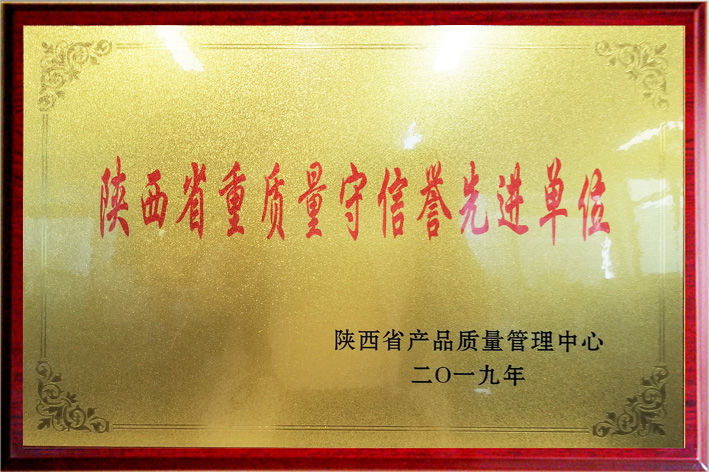 陕西省重质量守信誉先进单位
陕西省产品质量管理中心
二〇一九年